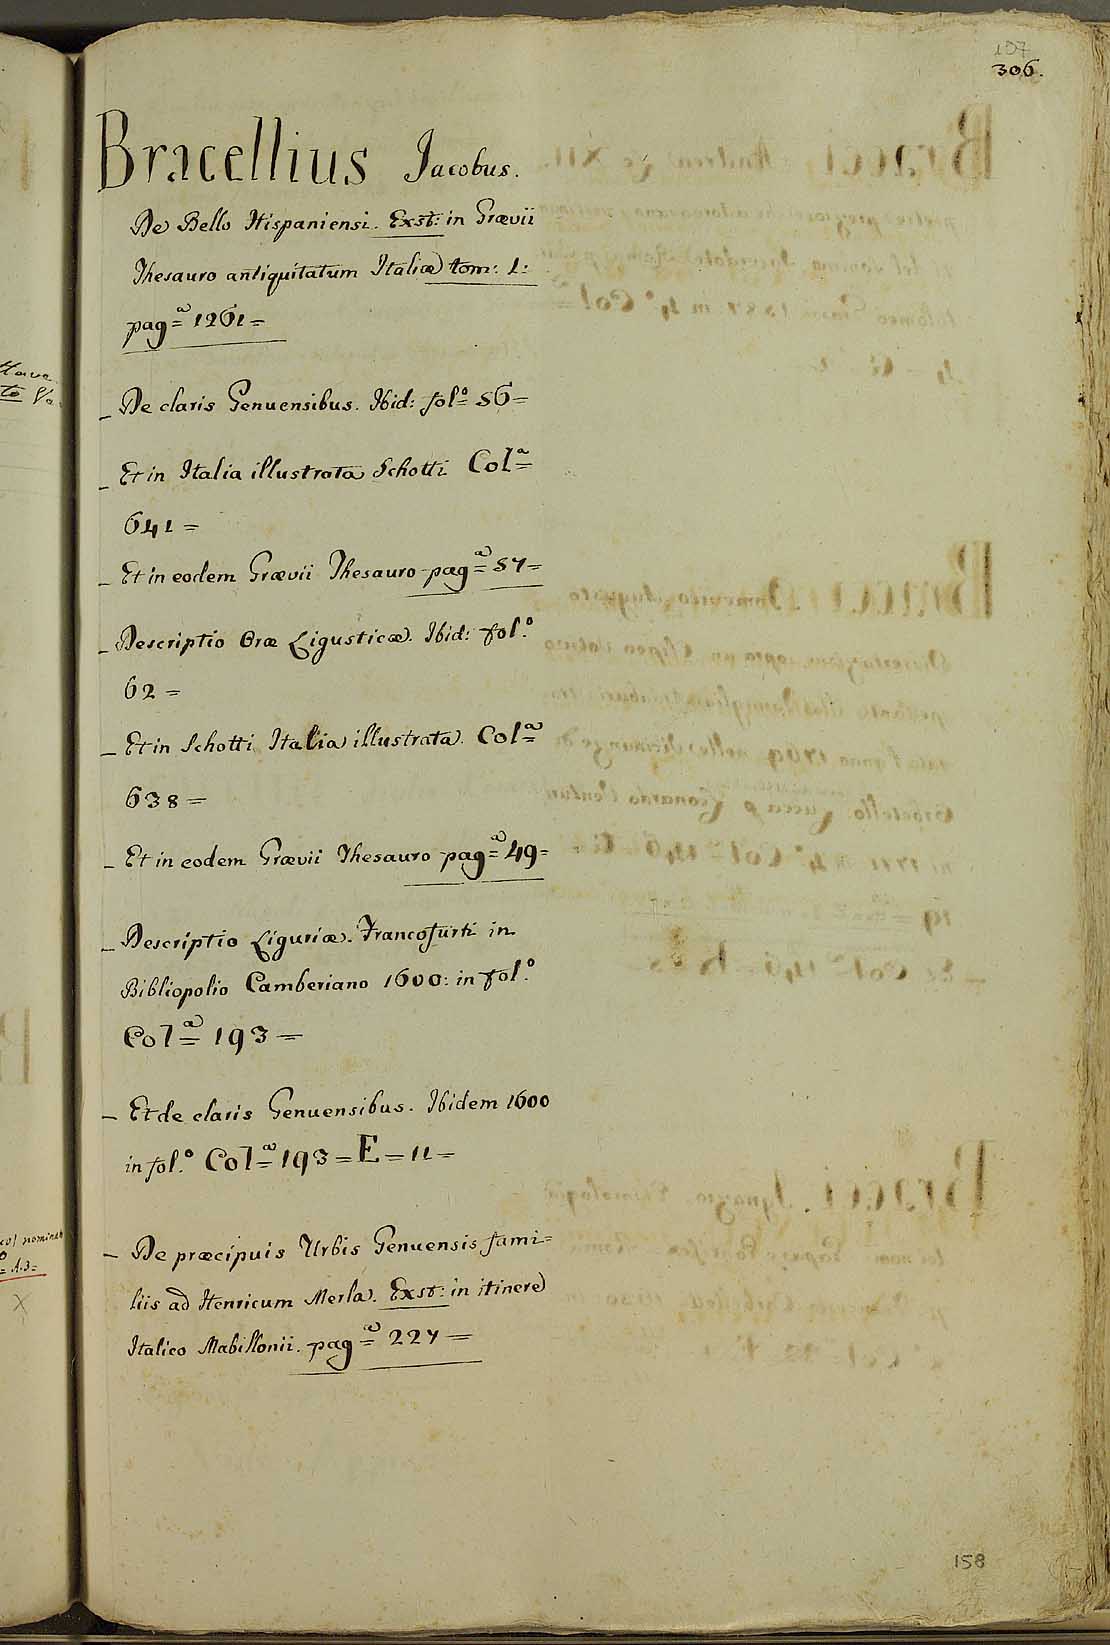 157
306.
Bracellius Jacobus.
De Bello Hispaniensi. Exst: in Grævii
Thesauro antiquitatum Italiæ tom: 1:
pagª 1261=
_ De claris Genuensibus. Ibid: folº 56=
_ Et in Italia illustrata Schotti Colª
641 =
_ Et in eodem Grævii Thesauro pagª 57=
_ Descriptio Oræ Ligusticæ. Ibid: fol.º
62 =
_ Et in Schotti Italia illustrata. Colª
638 =
_ Et in eodem Grævii Thesauro pagª 49=
_ Descriptio Liguriæ. Francofurti in
Bibliopolio Camberiano 1600: in fol.º
Colª 193 =
_ Et de claris Genuensibus. Ibidem 1600
in fol.º Colª 193 = E = 11 =
_ De præcipuis Urbis Genuensis fami=
liis ad Henricum Merla. Exst: in itinere
Italico Mabillonii. pagª 227 =
158